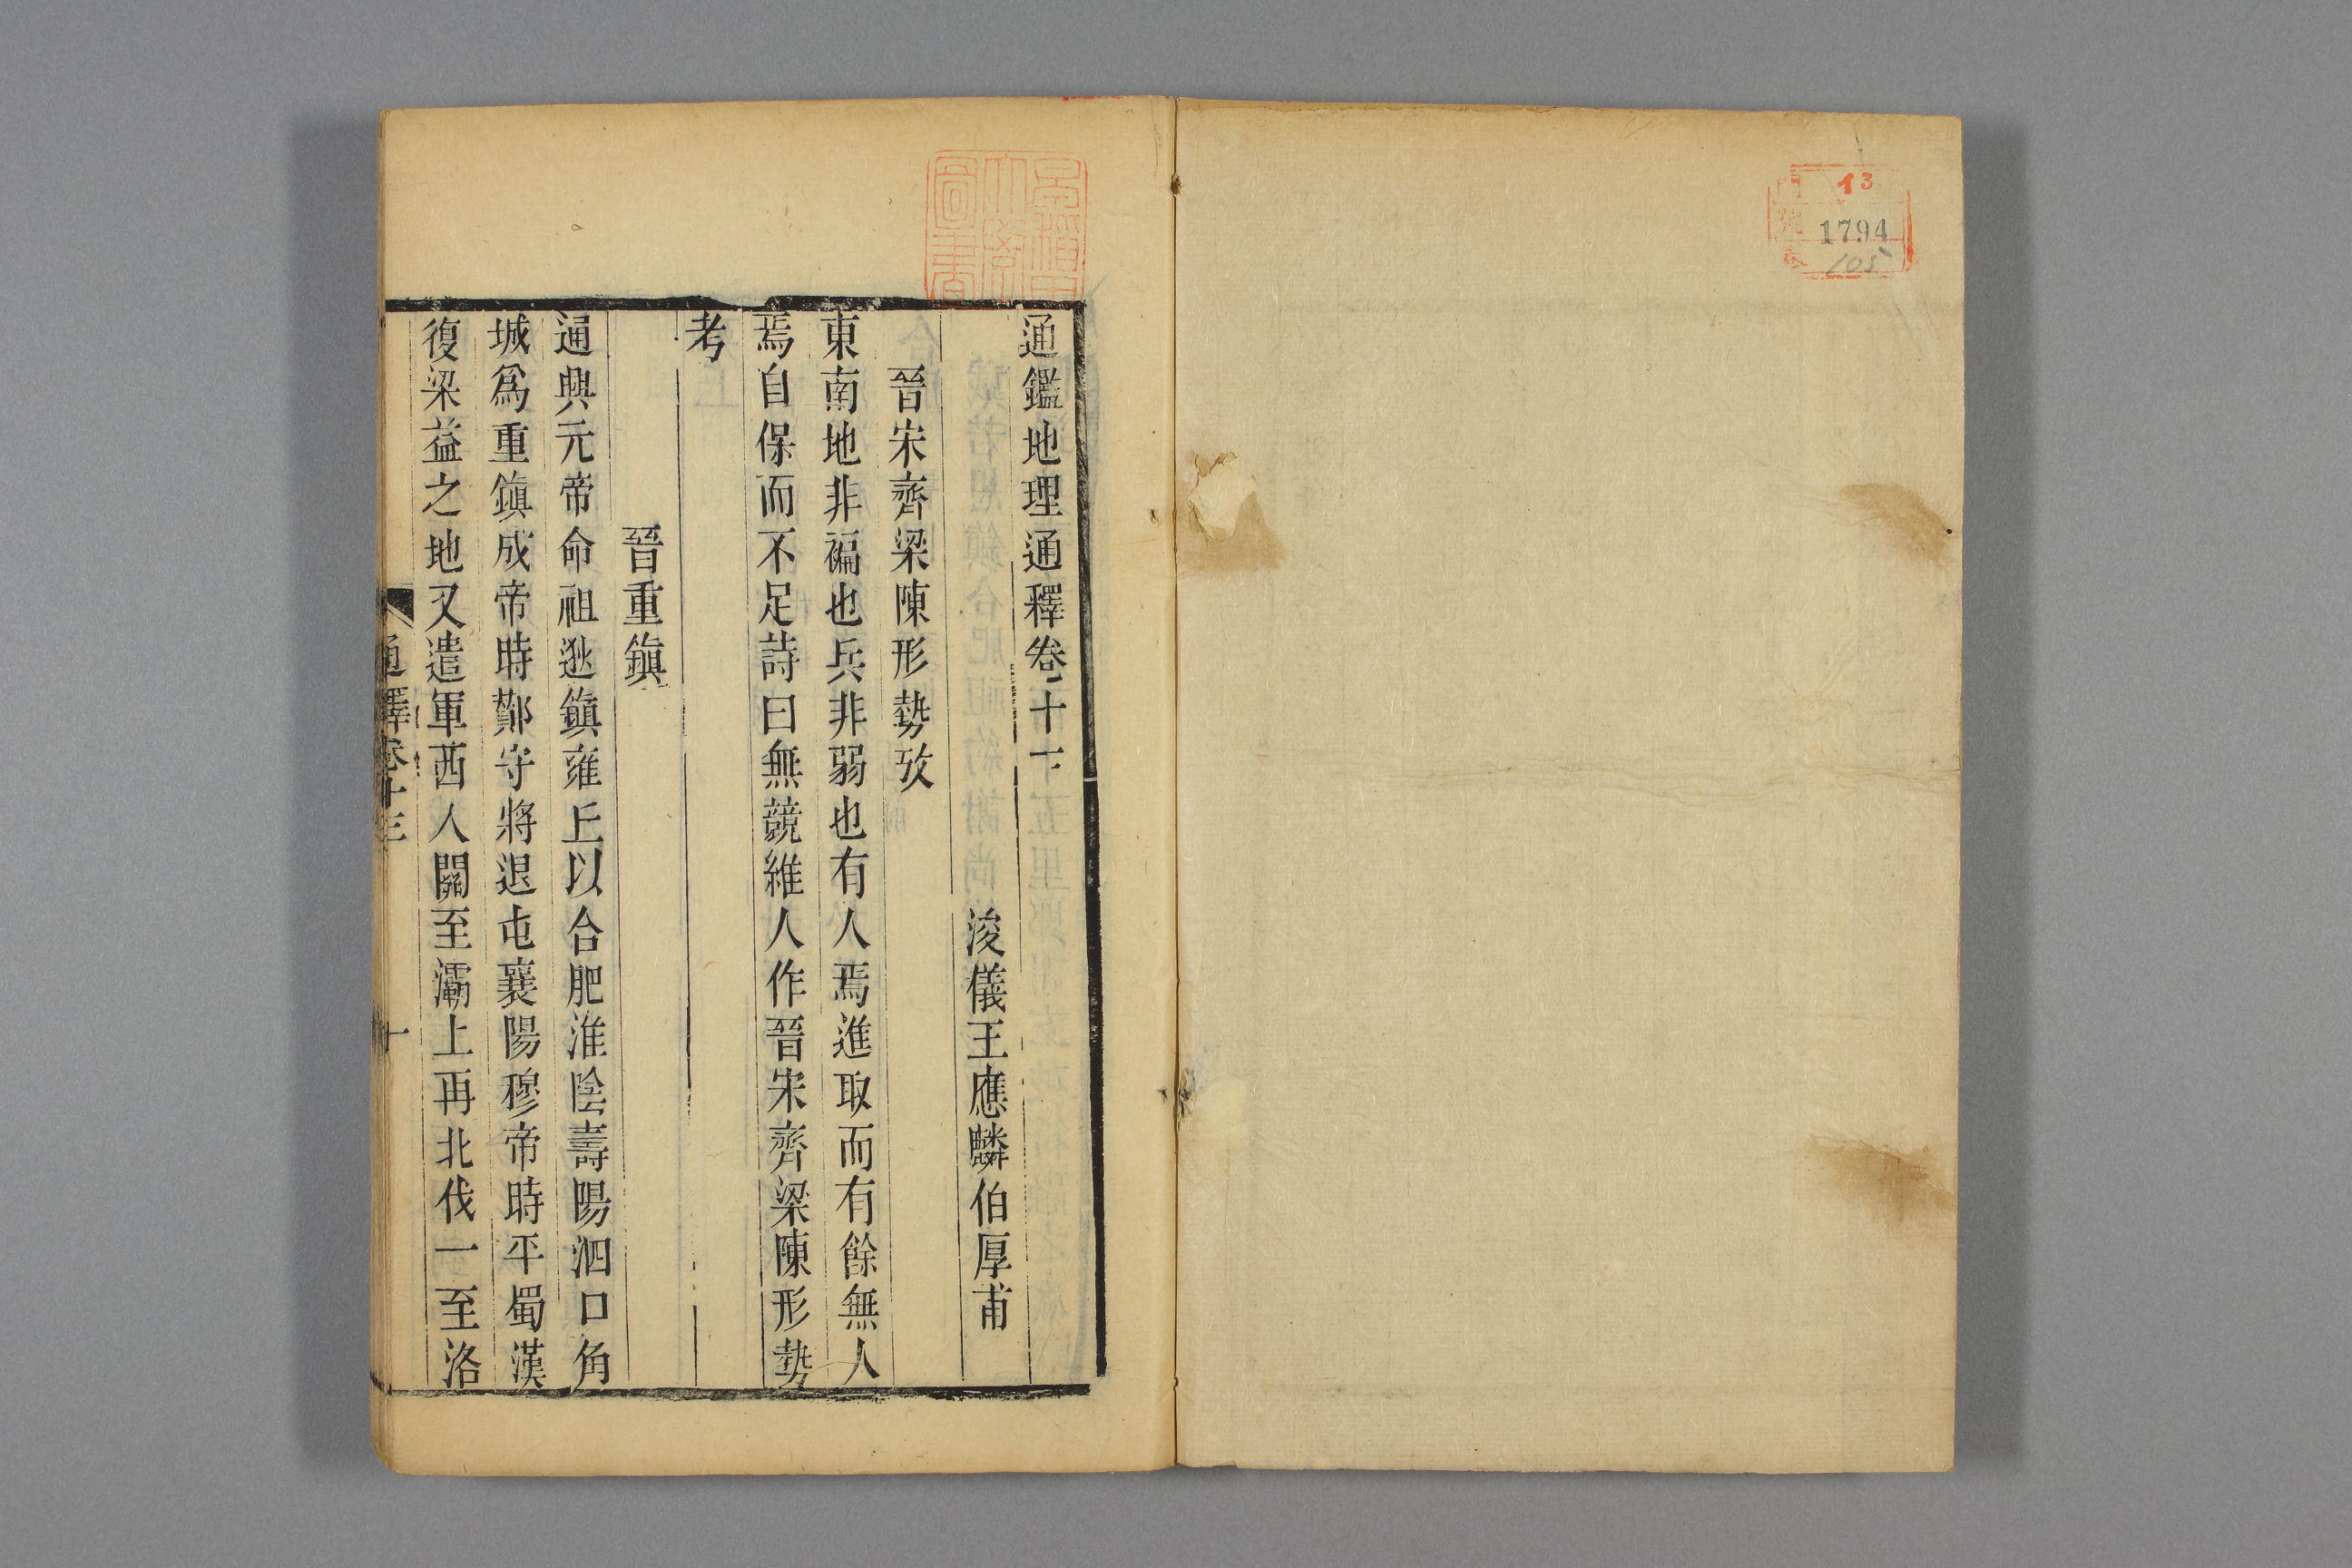 門 13
號 1794
卷 105
早稲田大學圖書
通鑑地理通釋卷十
浚儀王應麟伯厚甫
晉宋齊梁陳形勢攷
東南地非褊也兵非弱也有人焉進取而有餘無人
焉自保而不足詩曰無競維人作晉宋齊梁陳形勢
考
晉重鎮
通典元帝命祖逖鎮雍丘以合肥淮陰壽陽泗口角
城爲重鎮成帝時鄭守將退屯襄陽穆帝時平蜀漢
復梁益之地又遣軍西人關至灞上再北伐一至洛
通釋卷十三
一